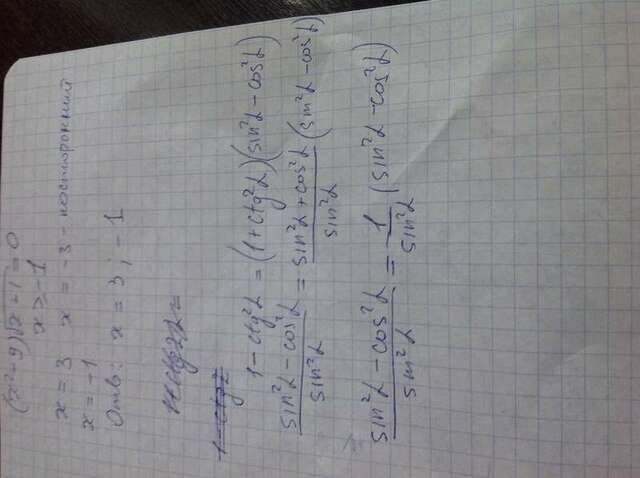 (x²-9)√x+1 = 0
x ≥ -1
x = 3 x = -3 - посторонний
x = -1
Ответ: x = 3; -1
1 - ctg²α = (1 + ctg²α)(sin²α - cos²α)
(sin²α - cos²α)/sin²α = (sin²α + cos²α)/sin²α (sin²α - cos²α)
(sin²α - cos²α)/sin²α = 1/sin²α (sin²α - cos²α)